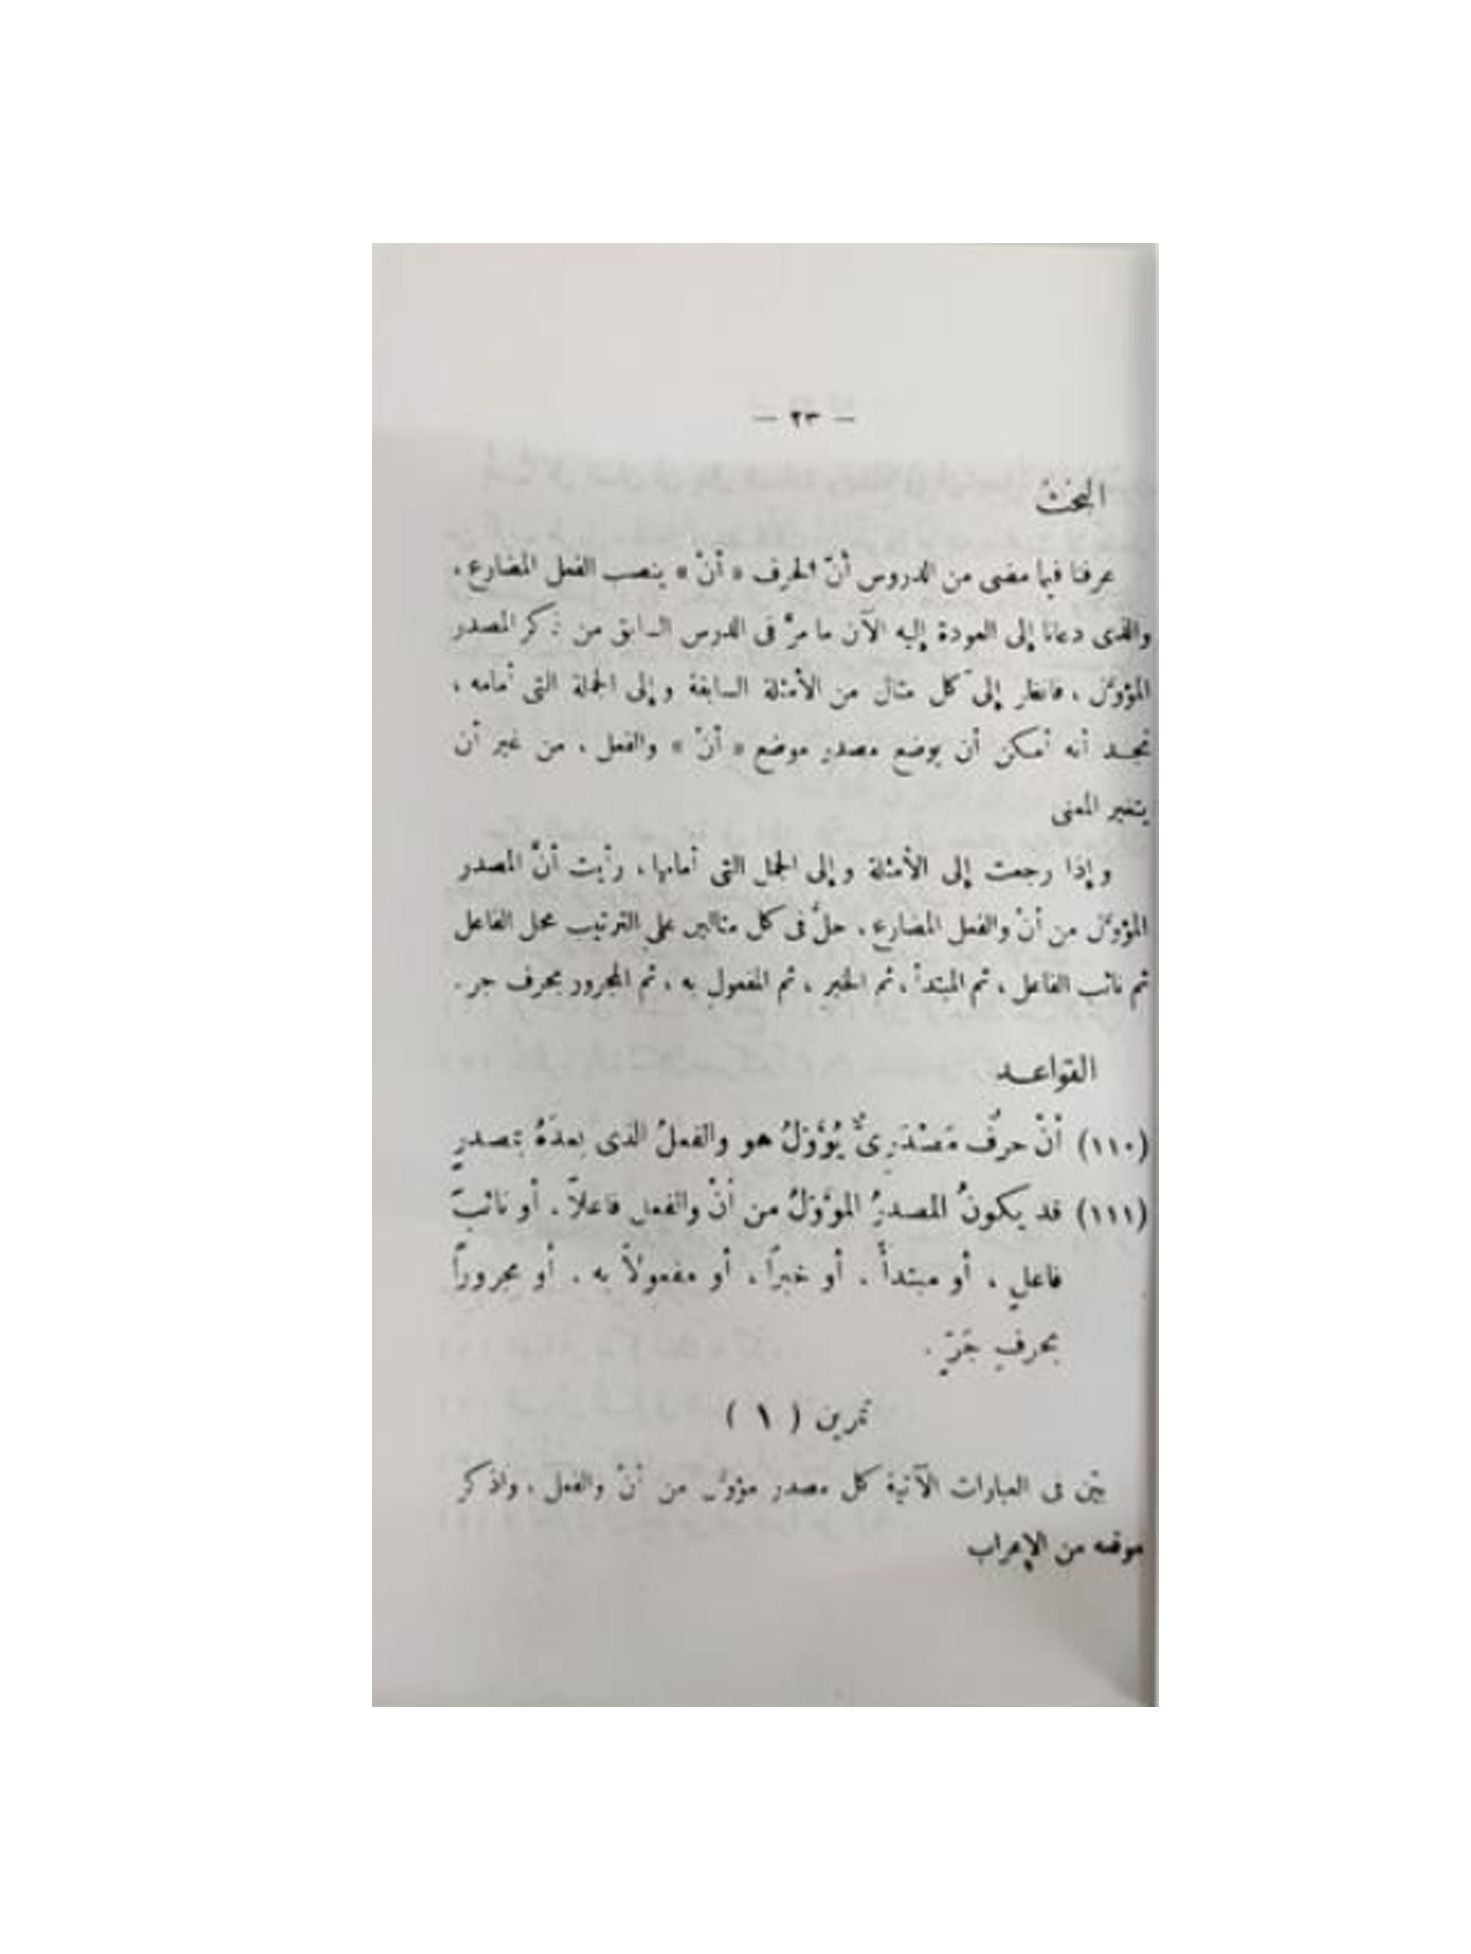 — ٢٣ —
البحثُ
عرفنا فيما مضى من الدروس أنّ الحرف « أنْ » ينصب الفعل المضارع ،
والذى دعانا إلى العودة إليه الآن ما مرَّ فى الدرس السابق من ذكر المصدر
المؤوَّل ، فانظر إلى كل مثال من الأمثلة السابقة وإلى الجملة التى أمامه ،
تجــد أنه أمكن أن يوضع مصدر موضع « أنْ » والفعل ، من غير أن
يتغير المعنى
وإذا رجعت إلى الأمثلة وإلى الجمل التى أمامها ، رأيت أنَّ المصدر
المؤوَّل من أنْ والفعل المضارع ، حلَّ فى كل مثالين على الترتيب محل الفاعل
ثم نائب الفاعل ، ثم المبتدأ ، ثم الخبر ، ثم المفعول به ، ثم المجرور بحرف جر .
القواعــد
(١١٠) أنْ حرفٌ مَصْدَرِىٌّ يُؤَوَّلُ هو والفعلُ الذى بعدَهُ بمصدرٍ
(١١١) قد يكونُ المصدرُ المؤوَّلُ من أنْ والفعل فاعلاً ، أو نائبَ
فاعلٍ ، أو مبتدأً ، أو خبرًا ، أو مفعولاً به ، أو مجروراً
بحرفِ جَرٍّ .
تمرين ( ١ )
بيّن فى العبارات الآتية كل مصدر مؤوَّل من أنْ والفعل ، واذكر
موقعه من الإعراب